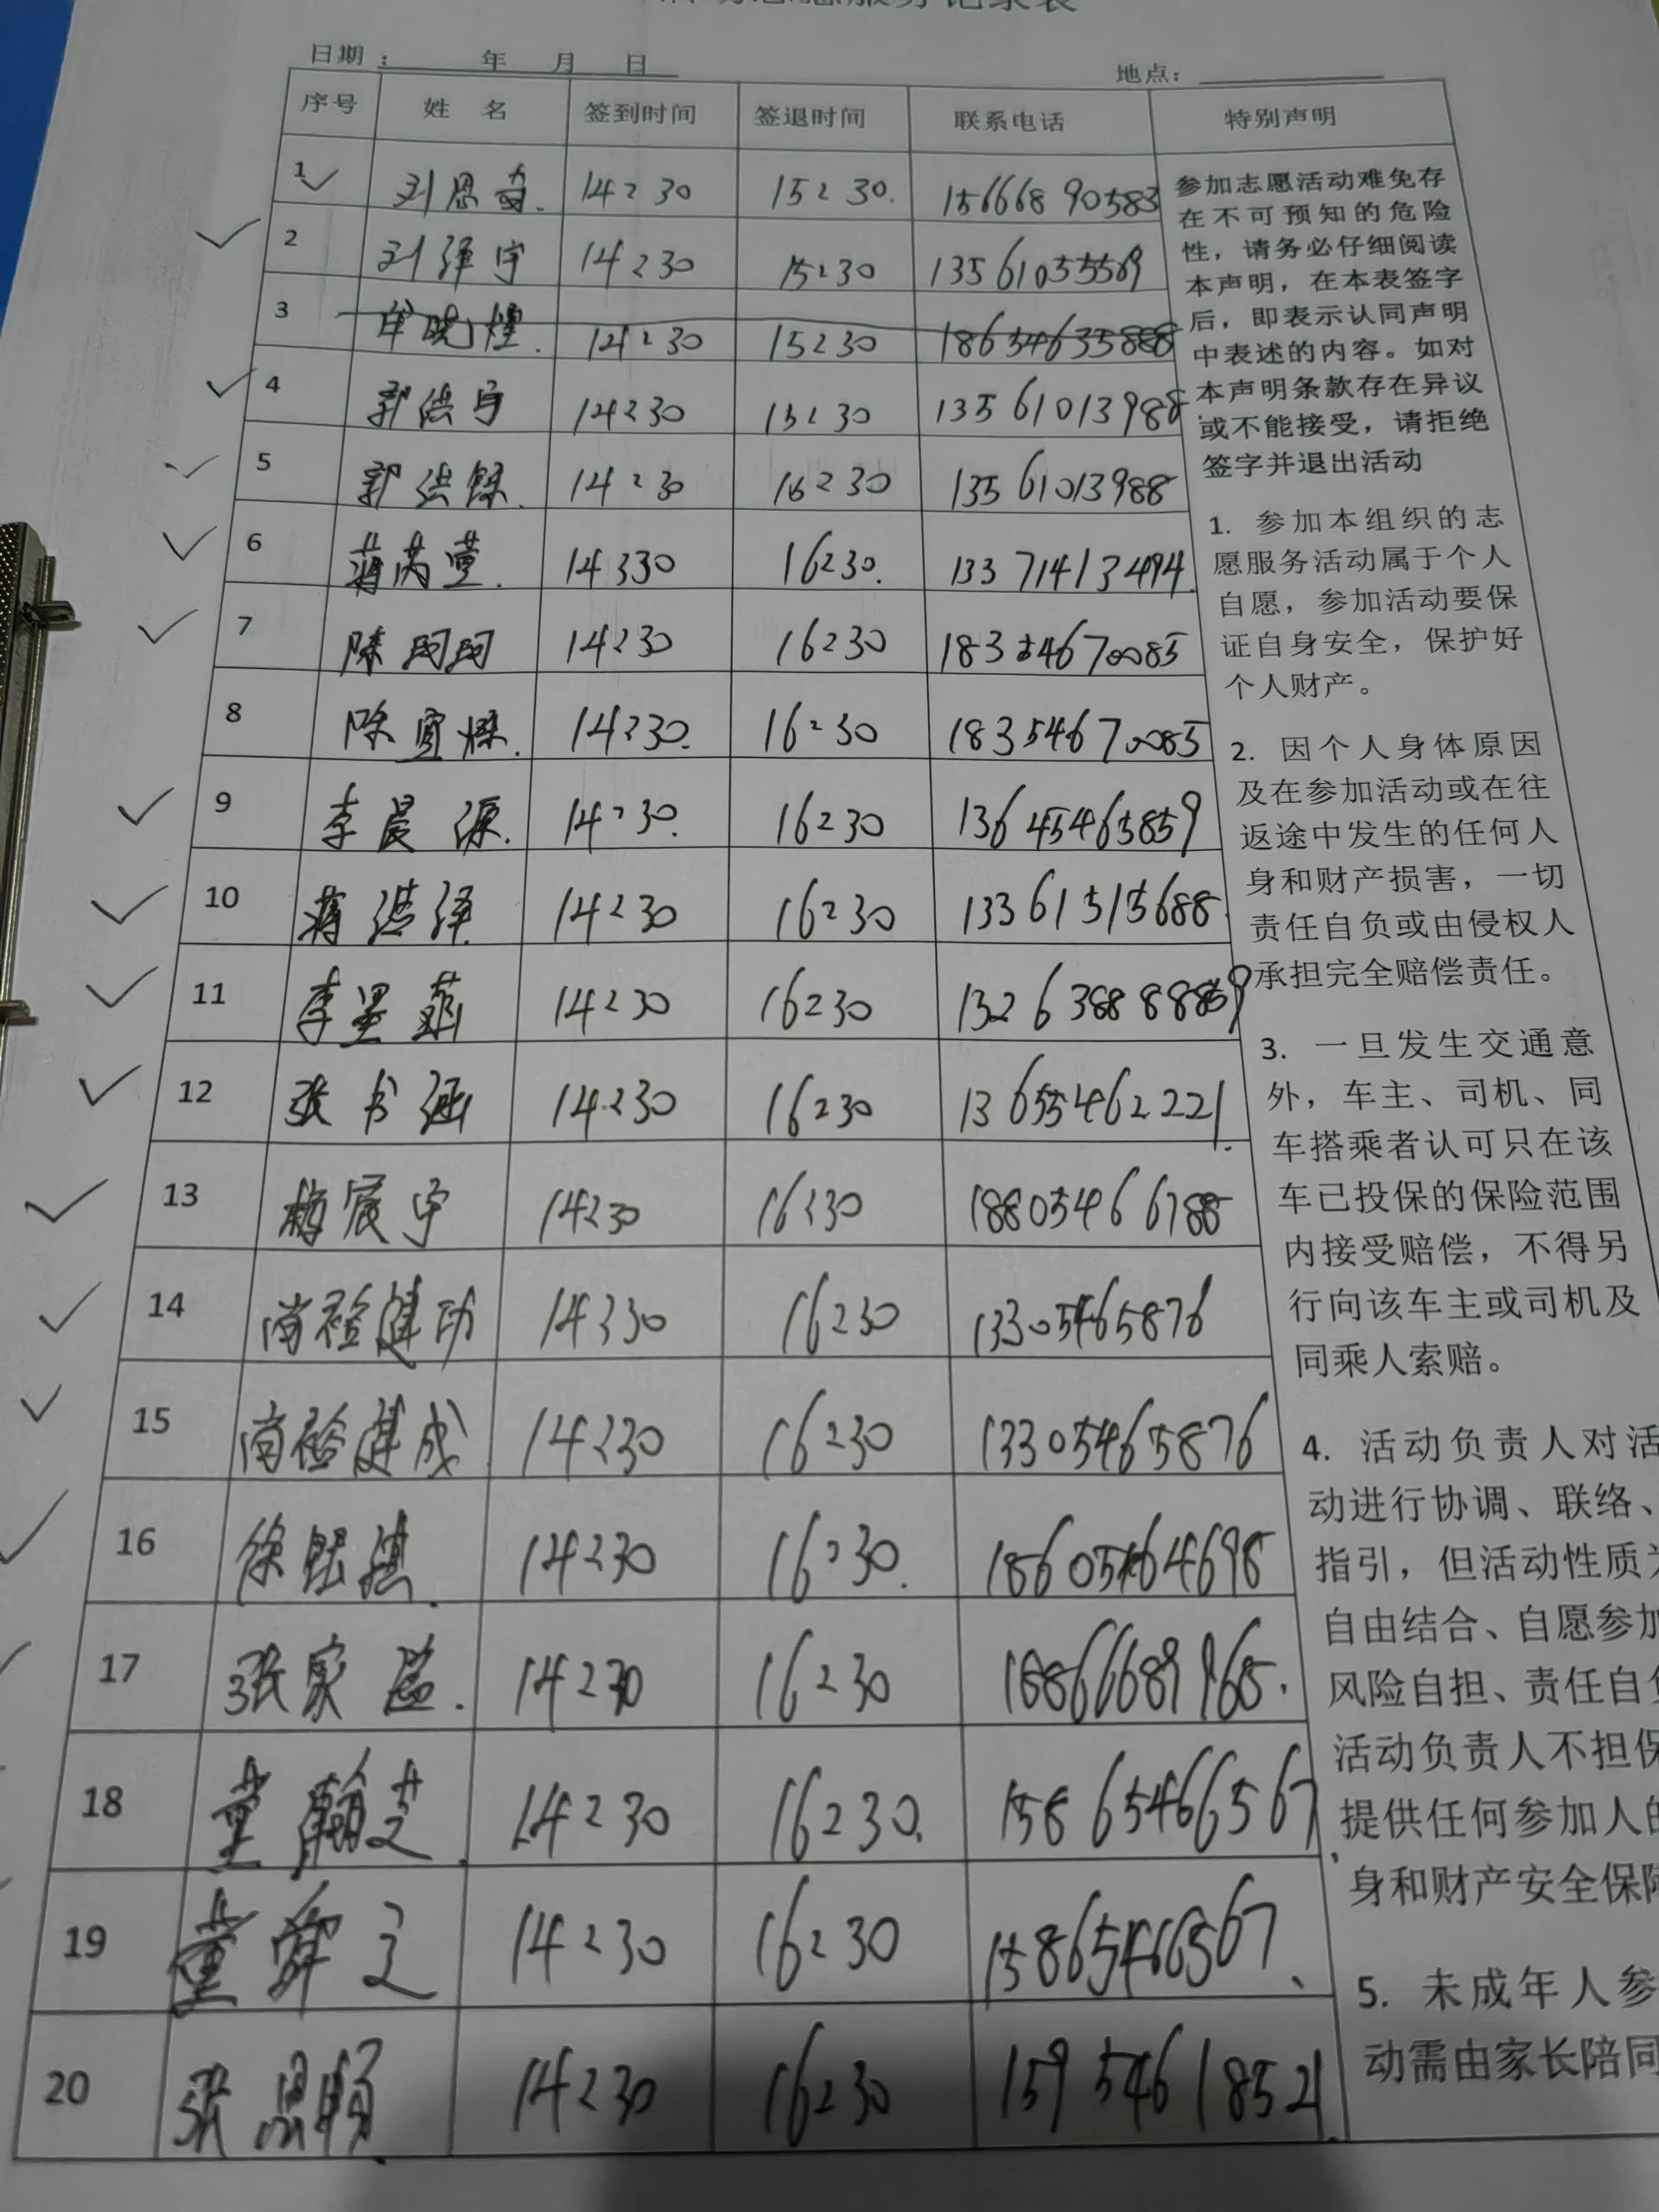 服务记录表
日期： 年 月 日 地点：
序号 姓 名 签到时间 签退时间 联系电话 特别声明
1 14:30 15:30. 15666890583
2 刘泽宇 14:30 15:30 13561055569
3 14:30 15:30 18654635888
4 郭洪宇 14:30 15:30 13561013988
5 郭洪 14:30 16:30 13561013988
6 蒋芮萱. 14:30 16:30. 13371413494
7 陈珂珂 14:30 16:30 18354670085
8 陈宣烁. 14:30. 16:30 18354670085
9 李晨源. 14:30. 16:30 13645465859
10 蒋洪泽 14:30 16:30 13361515688
11 李墨菡 14:30 16:30
12 张书涵 14:30 16:30 13655462221.
13 宸宇 14:30 16:30 18805466788
14 尚检建功 14:30 16:30 13305465876
15 尚检建成 14:30 16:30 13305465876
16 徐 14:30 16:30. 18605464698
17 张家 . 14:30 16:30 18866689968.
18 董翰芝. 14:30 16:30. 15865466567
19 董 之 14:30 16:30 15865466567
20 张思 14:30 16:30 15954618521
参加志愿活动难免存
在不可预知的危险
性，请务必仔细阅读
本声明，在本表签字
后，即表示认同声明
中表述的内容。如对
本声明条款存在异议
或不能接受，请拒绝
签字并退出活动
1. 参加本组织的志
愿服务活动属于个人
自愿，参加活动要保
证自身安全，保护好
个人财产。
2. 因个人身体原因
及在参加活动或在往
返途中发生的任何人
身和财产损害，一切
责任自负或由侵权人
承担完全赔偿责任。
3. 一旦发生交通意
外，车主、司机、同
车搭乘者认可只在该
车已投保的保险范围
内接受赔偿，不得另
行向该车主或司机及
同乘人索赔。
4. 活动负责人对活
动进行协调、联络、
指引，但活动性质为
自由结合、自愿参加
风险自担、责任自负
活动负责人不担保
提供任何参加人的
身和财产安全保障
5. 未成年人参
动需由家长陪同